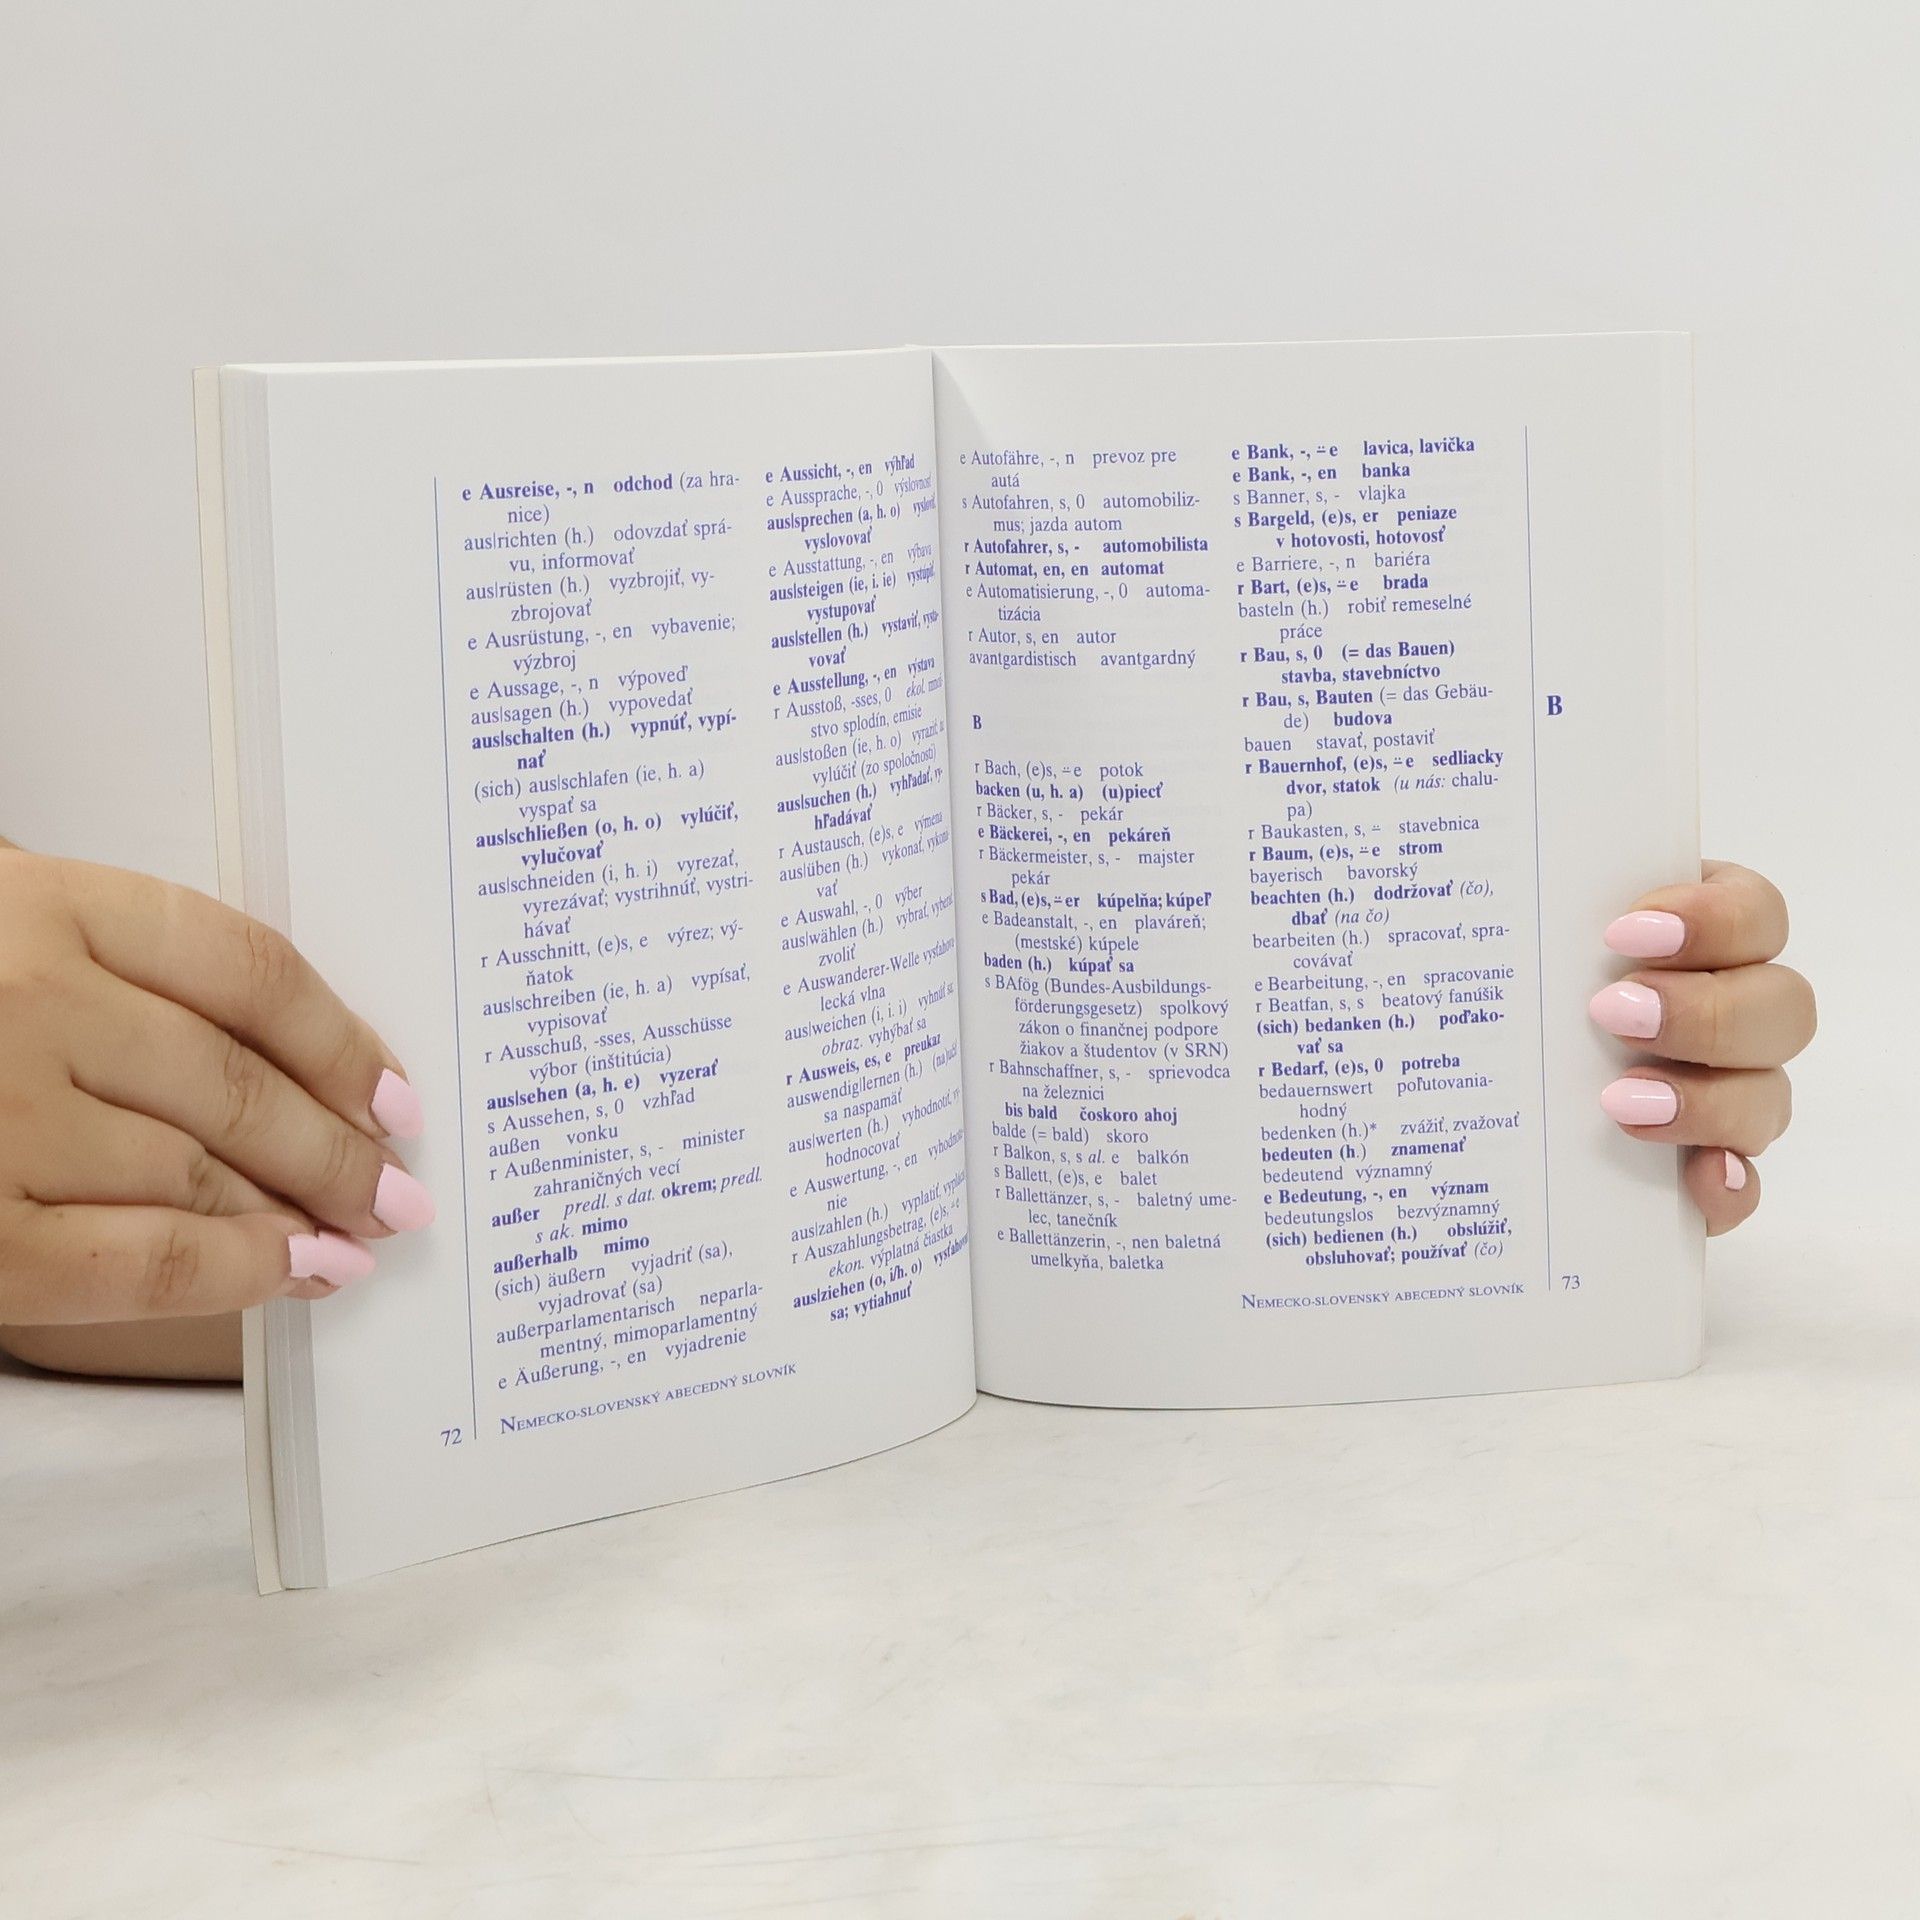 e Ausreise, -, n odchod (za hra-
nice)
aus|richten (h.) odovzdať sprá-
vu, informovať
aus|rüsten (h.) vyzbrojiť, vy-
zbrojovať
e Ausrüstung, -, en vybavenie;
výzbroj
e Aussage, -, n výpoveď
aus|sagen (h.) vypovedať
aus|schalten (h.) vypnúť, vypí-
nať
(sich) aus|schlafen (ie, h. a)
vyspať sa
aus|schließen (o, h. o) vylúčiť,
vylučovať
aus|schneiden (i, h. i) vyrezať,
vyrezávať; vystrihnúť, vystri-
hávať
r Ausschnitt, (e)s, e výrez; vý-
ňatok
aus|schreiben (ie, h. a) vypísať,
vypisovať
r Ausschuß, -sses, Ausschüsse
výbor (inštitúcia)
aus|sehen (a, h. e) vyzerať
s Aussehen, s, 0 vzhľad
außen vonku
r Außenminister, s, - minister
zahraničných vecí
außer predl. s dat. okrem; predl.
s ak. mimo
außerhalb mimo
(sich) äußern vyjadriť (sa),
vyjadrovať (sa)
außerparlamentarisch neparla-
mentný, mimoparlamentný
e Äußerung, -, en vyjadrenie
e Aussicht, -, en výhľad
e Aussprache, -, 0 výslovnosť
aus|sprechen (a, h. o)
vyslovovať
e Ausstattung, -, en výbava
aus|steigen (ie, i. ie) vystúpiť,
vystupovať
aus|stellen (h.) vystaviť, vysta-
vovať
e Ausstellung, -, en výstava
r Ausstoß, -sses, 0 ekol. množ-
stvo splodín, emisie
aus|stoßen (ie, h. o) vyraziť;
vylúčiť (zo spoločnosti)
aus|suchen (h.) vyhľadať, vy-
hľadávať
r Austausch, (e)s, e výmena
aus|üben (h.) vykonať, vykoná-
vať
e Auswahl, -, 0 výber
aus|wählen (h.) vybrať, vyberať,
zvoliť
e Auswanderer-Welle vysťahova-
lecká vlna
aus|weichen (i, i. i) vyhnúť sa;
obraz. vyhýbať sa
r Ausweis, es, e preukaz
auswendig|lernen (h.) (na)učiť
sa naspamäť
aus|werten (h.) vyhodnotiť, vy-
hodnocovať
e Auswertung, -, en vyhodnote-
nie
aus|zahlen (h.) vyplatiť, vyplácať
r Auszahlungsbetrag, (e)s, ⸚e
ekon. výplatná čiastka
aus|ziehen (o, i/h. o) vysťahovať
sa; vytiahnuť
72 NEMECKO-SLOVENSKÝ ABECEDNÝ SLOVNÍK
e Autofähre, -, n prevoz pre
autá
s Autofahren, s, 0 automobiliz-
mus; jazda autom
r Autofahrer, s, - automobilista
r Automat, en, en automat
e Automatisierung, -, 0 automa-
tizácia
r Autor, s, en autor
avantgardistisch avantgardný
B
r Bach, (e)s, ⸚e potok
backen (u, h. a) (u)piecť
r Bäcker, s, - pekár
e Bäckerei, -, en pekáreň
r Bäckermeister, s, - majster
pekár
s Bad, (e)s, ⸚er kúpeľňa; kúpeľ
e Badeanstalt, -, en plaváreň;
(mestské) kúpele
baden (h.) kúpať sa
s BAfög (Bundes-Ausbildungs-
förderungsgesetz) spolkový
zákon o finančnej podpore
žiakov a študentov (v SRN)
r Bahnschaffner, s, - sprievodca
na železnici
bis bald čoskoro ahoj
balde (= bald) skoro
r Balkon, s, s al. e balkón
s Ballett, (e)s, e balet
r Ballettänzer, s, - baletný ume-
lec, tanečník
e Ballettänzerin, -, nen baletná
umelkyňa, baletka
e Bank, -, ⸚e lavica, lavička
e Bank, -, en banka
s Banner, s, - vlajka
s Bargeld, (e)s, er peniaze
v hotovosti, hotovosť
e Barriere, -, n bariéra
r Bart, (e)s, ⸚e brada
basteln (h.) robiť remeselné
práce
r Bau, s, 0 (= das Bauen)
stavba, stavebníctvo
r Bau, s, Bauten (= das Gebäu-
de) budova
bauen stavať, postaviť
r Bauernhof, (e)s, ⸚e sedliacky
dvor, statok (u nás: chalu-
pa)
r Baukasten, s, ⸚ stavebnica
r Baum, (e)s, ⸚e strom
bayerisch bavorský
beachten (h.) dodržovať (čo),
dbať (na čo)
bearbeiten (h.) spracovať, spra-
covávať
e Bearbeitung, -, en spracovanie
r Beatfan, s, s beatový fanúšik
(sich) bedanken (h.) poďako-
vať sa
r Bedarf, (e)s, 0 potreba
bedauernswert poľutovania-
hodný
bedenken (h.)* zvážiť, zvažovať
bedeuten (h.) znamenať
bedeutend významný
e Bedeutung, -, en význam
bedeutungslos bezvýznamný
(sich) bedienen (h.) obslúžiť,
obsluhovať; používať (čo)
B
NEMECKO-SLOVENSKÝ ABECEDNÝ SLOVNÍK 73